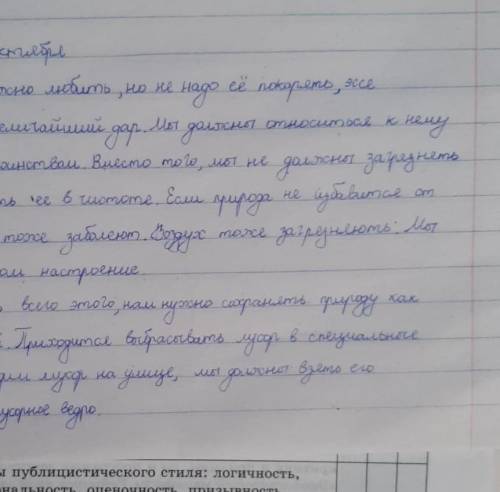 ктября
жно любить, но не надо её покорять, эсе
еличайший дар. Мы должны относиться к нему
аинством. Вместо того, мы не должны загрезнеть
ть ее в чистоте. Если природа не избавится от
тоже заболеют. Воздух тоже загрезняють. Мы
ом настроение.
всего этого, нам нужно сохранять природу как
. Приходится выбрасывать мусор в специальные
дим мусор на улице, мы должны взять его
усорное ведро.
ы публицистического стиля: логичность,
ональность, оценочность, призывность